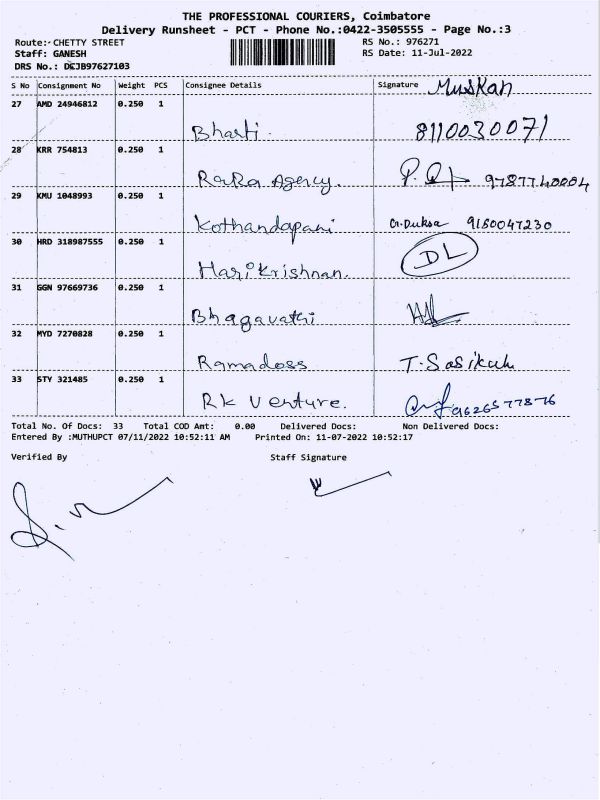 THE PROFESSIONAL COURIERS, Coimbatore
Delivery Runsheet - PCT - Phone No.:0422-3505555 - Page No.:3
Route:- CHETTY STREET RS No.: 976271
Staff: GANESH RS Date: 11-Jul-2022
DRS No.: DEJB97627103
S No Consignment No Weight PCS Consignee Details Signature Muskan
27 AMD 24946812 0.250 1
Bharti 8110030071
28 KRR 754813 0.250 1
RaRa Agency. 9787740004
29 KMU 1048993 0.250 1
Kothandapani G.Duksa 9160047230
30 HRD 318987555 0.250 1 DL
Hari Krishnan.
31 GGN 97669736 0.250 1
Bhagavathi
32 MYD 7270828 0.250 1
Ramadoss T. Sasikuh
33 STY 321485 0.250 1
RK Venture. 9626577876
Total No. Of Docs: 33 Total COD Amt: 0.00 Delivered Docs: Non Delivered Docs:
Entered By :MUTHUPCT 07/11/2022 10:52:11 AM Printed On: 11-07-2022 10:52:17
Verified By Staff Signature